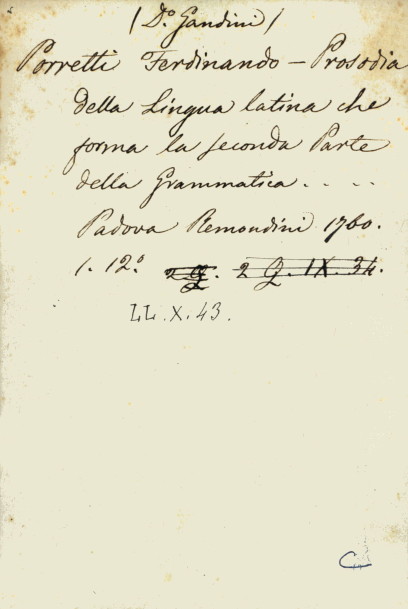 (D.º Gandini)
Porretti Ferdinando – Prosodia
della Lingua latina che
forma la seconda Parte
della Grammatica . . . .
Padova Remondini 1760.
1. 12.º 2 Q. 2 Q. IX. 34.
LL. X. 43.
C